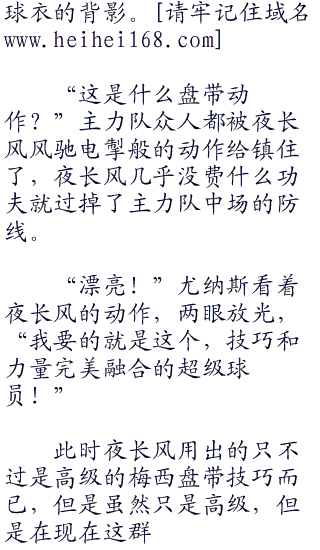 球衣的背影。[请牢记住域名
www.heihei168.com]
“这是什么盘带动
作？”主力队众人都被夜长
风风驰电掣般的动作给镇住
了，夜长风几乎没费什么功
夫就过掉了主力队中场的防
线。
“漂亮！”尤纳斯看着
夜长风的动作，两眼放光，
“我要的就是这个，技巧和
力量完美融合的超级球
员！”
此时夜长风用出的只不
过是高级的梅西盘带技巧而
已，但是虽然只是高级，但
是在现在这群